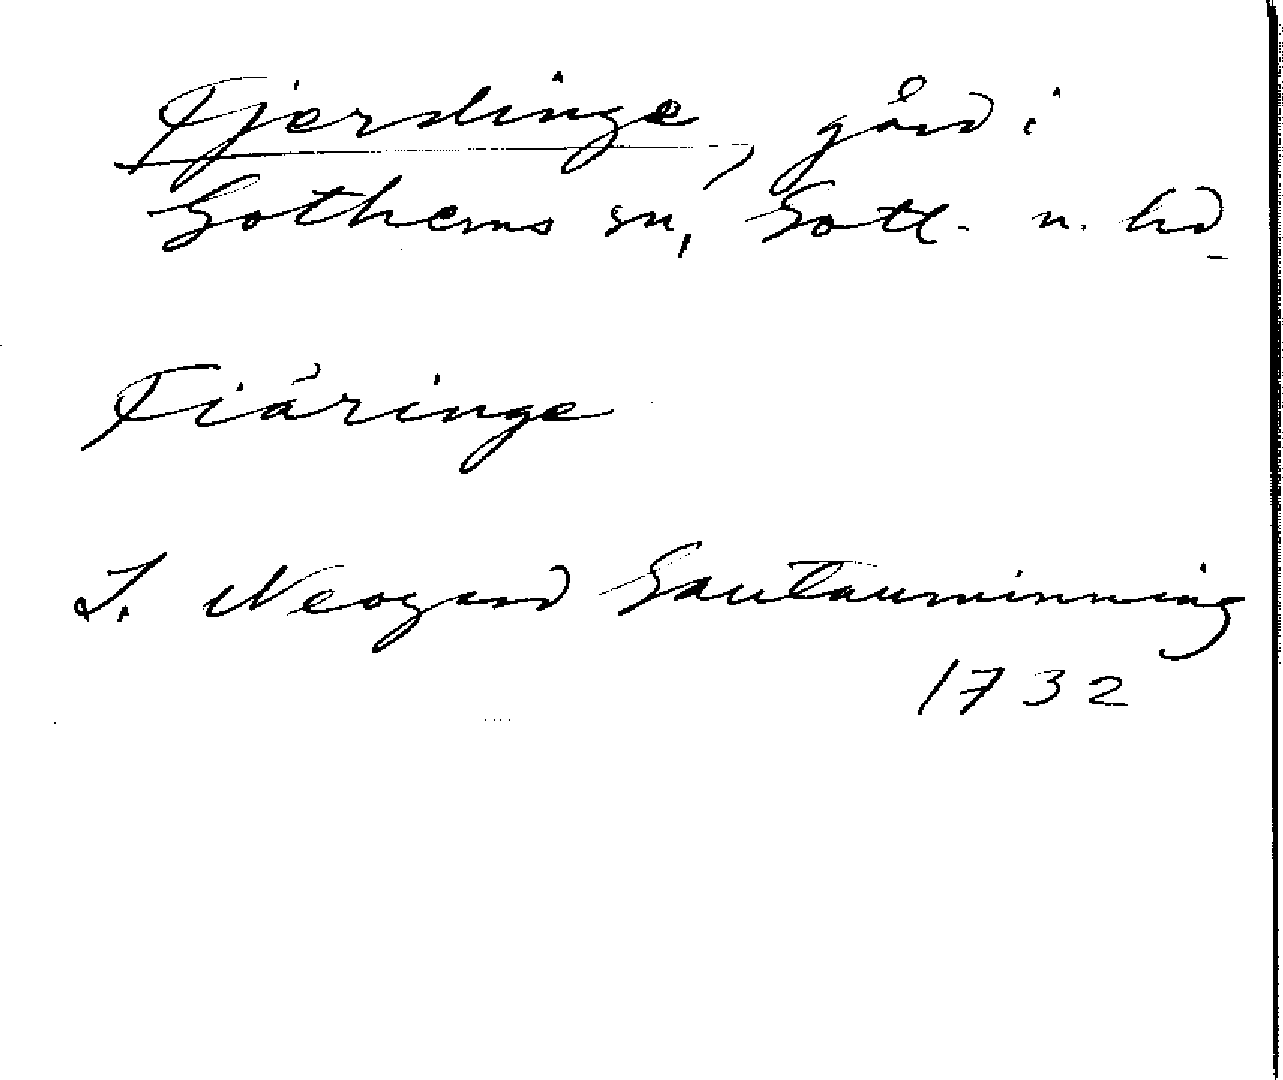 Fjerdinge, gård i
Gothems sn, Gotl. n. hd
Fiäringe
J. Neogard Gautauminning
1732